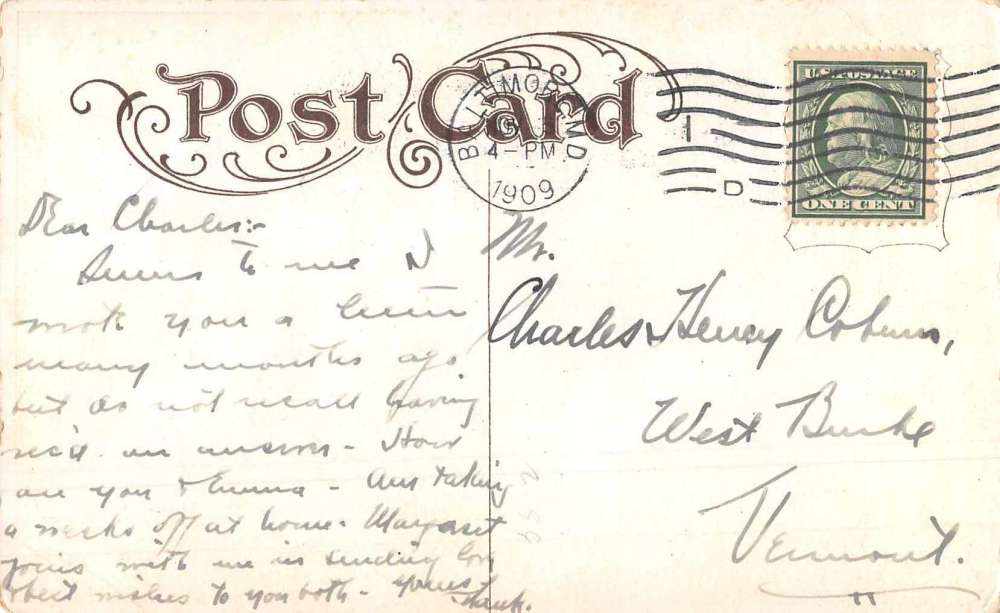 Post Card
BALTIMORE, MD
4-PM
1909
1
D
U.S. POSTAGE
ONE CENT
Dear Charles:-
Seems to me I
wrote you a letter
many months ago
but do not recall having
rec'd. an answer - How
are you & Emma - Am taking
a weeks off at home. Margaret
joins with me in sending love
& best wishes to you both - Yours
Frank.
Mr.
Charles Henry Coburn,
West Burke
Vermont.